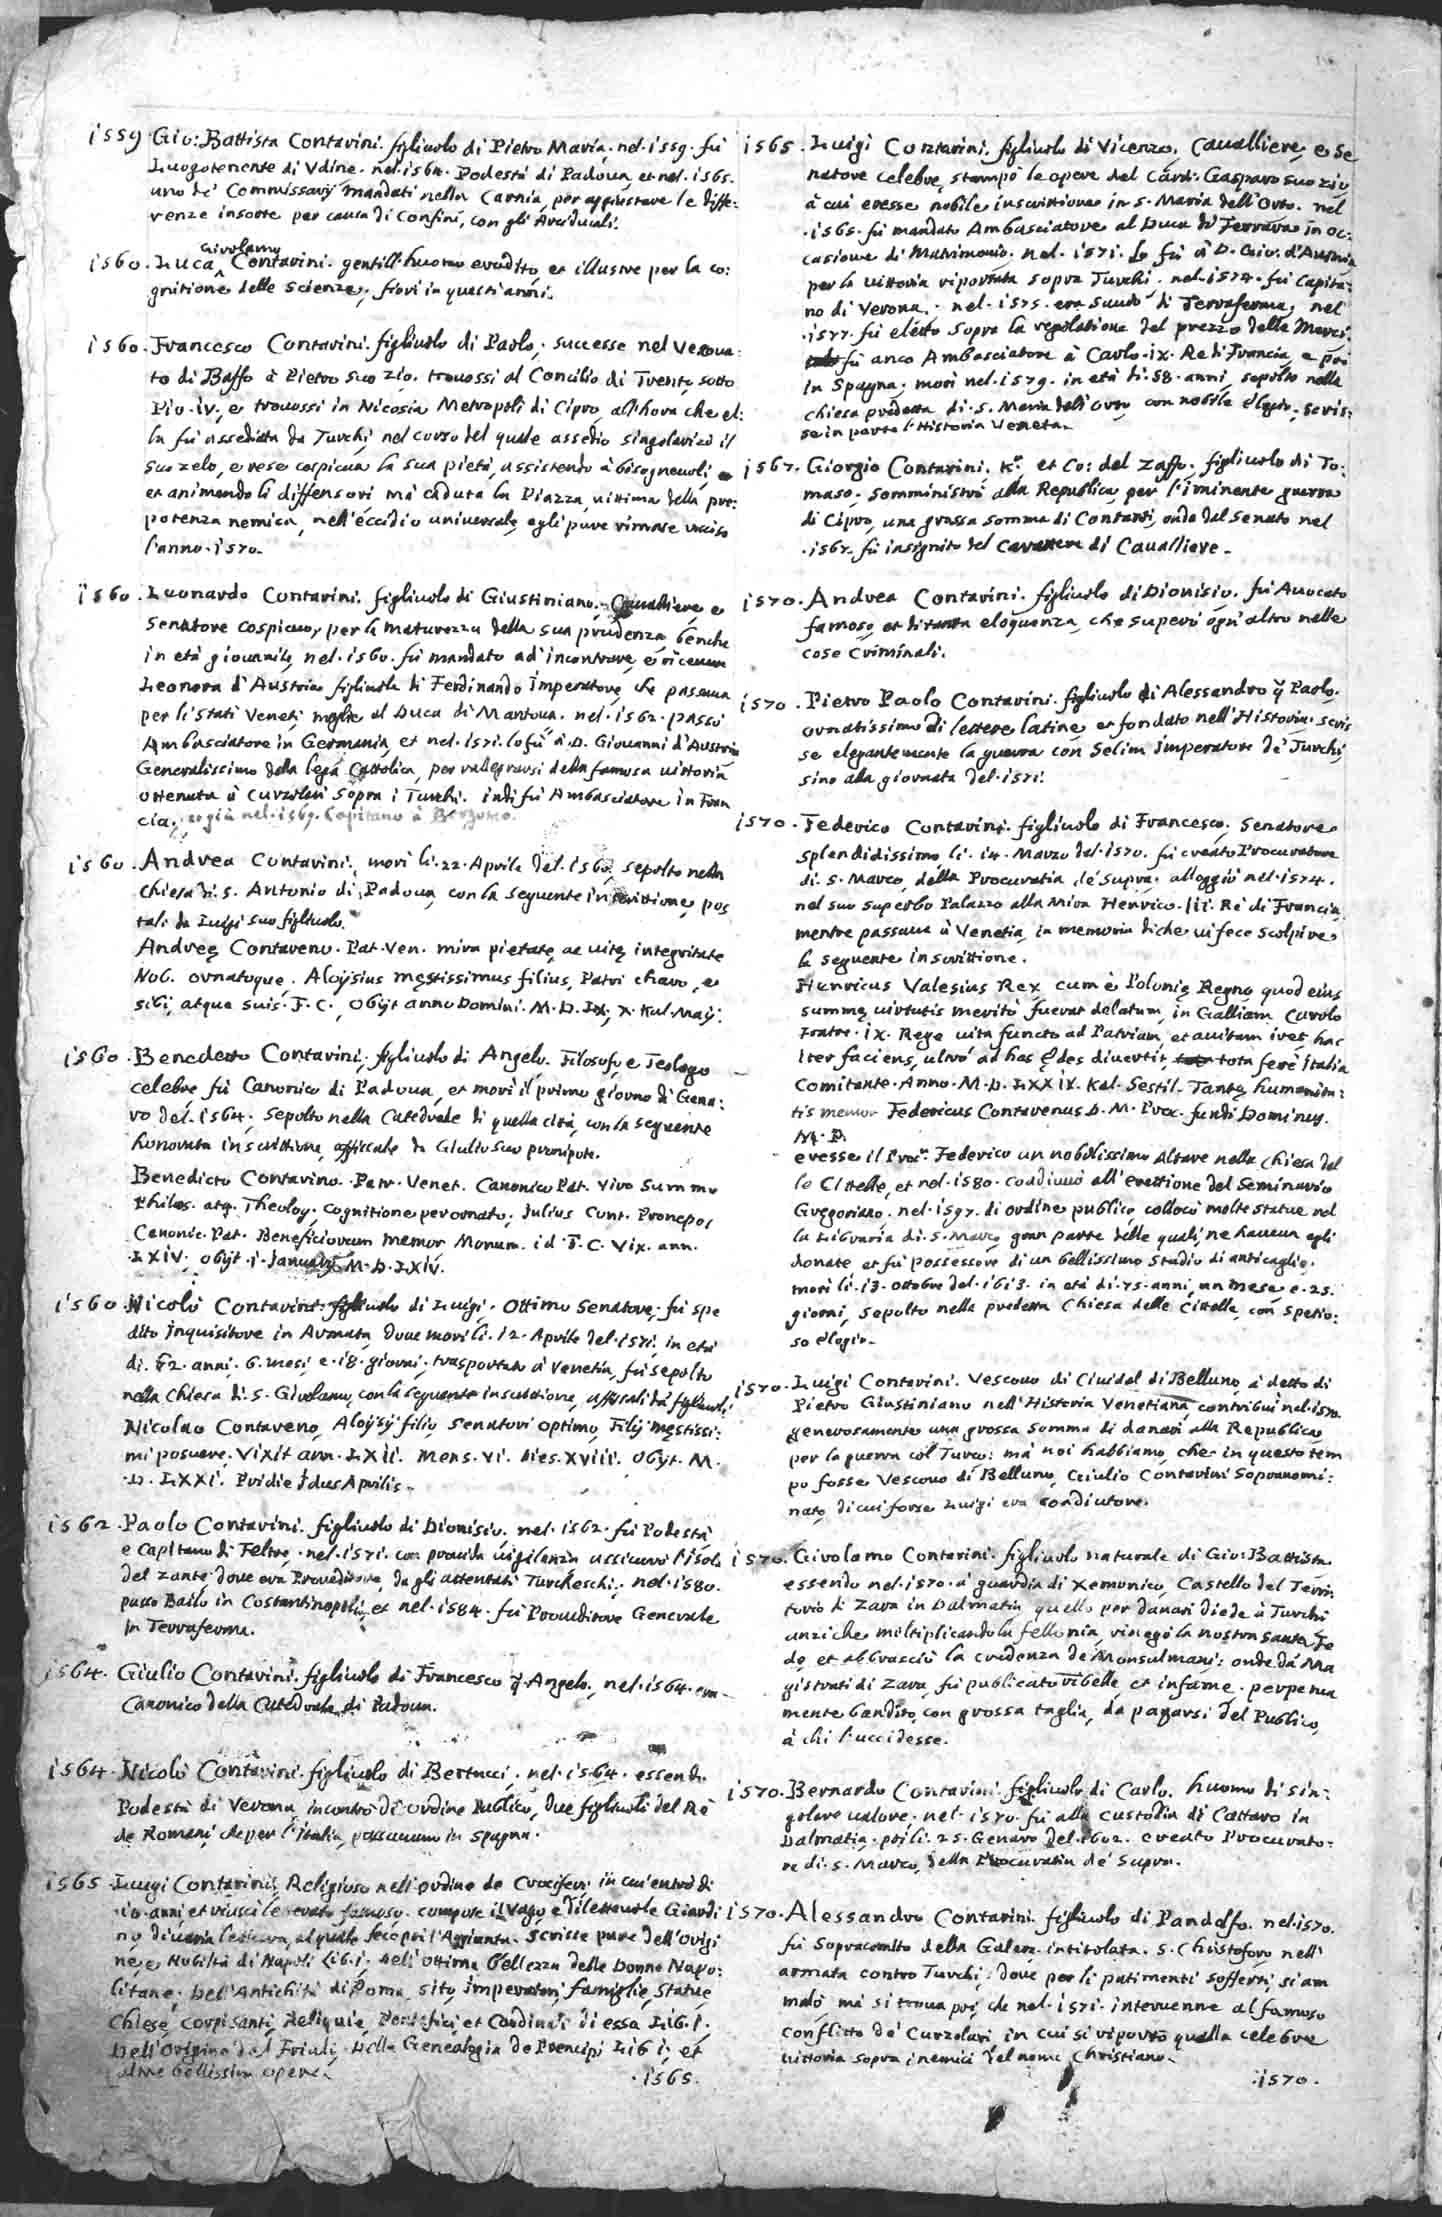 1559. Gio: Battista Contarini. figliuolo di Pietro Maria, nel. 1559. fù
Luogotenente di Vdine. nel. 1564. Podestà di Padoua, et nel. 1565.
uno de' Commissarij mandati nella Carnia, per aggiustare le diffe:
renze insorte per causa di Confini, con gli Arciducali.
Girolamo
1560. Luca Contarini. gentill'huomo erudito, et illustre per la co:
gnitione delle scienze, fiorì in questi anni.
1560. Francesco Contarini. figliuolo di Paolo, successe nel Vescoua:
to di Baffo à Pietro suo zio. trouossi al Concilio di Trento, sotto
Pio. iv, e trouossi in Nicosia Metropoli di Cipro, allhora che el:
la fù assediata da Turchi, nel corso del quale assedio singolarizò il
suo zelo, e rese cospicua la sua pietà, assistendo à bisogneuoli,
et animando li diffensori mà caduta la Piazza, uittima della pre:
potenza nemica, nell'eccidio uniuersale, egli pure rimase ucciso
l'anno. 1570.
1560. Leonardo Contarini. figliuolo di Giustiniano, Caualliere, e
Senatore cospicuo, per la maturezza della sua prudenza, benche
in età giouanile, nel. 1560. fù mandato ad'incontrare, e riceuere
Leonora d'Austria figliuola di Ferdinando Imperatore, che passaua
per li stati Veneti, moglie al Duca di Mantoua. nel. 1562. passò
Ambasciatore in Germania, et nel. 1571. lo fù à D. Giouanni d'Austria
Generalissimo della lega Cattolica, per rallegrarsi della famosa uittoria
ottenuta à Curzolari sopra i Turchi. indi fù Ambasciatore in Fran
cia, et già nel. 1569. Capitano à Bergamo.
1560. Andrea Contarini, morì li. 22. Aprile del. 1560, sepolto nella
Chiesa di. S. Antonio di Padoua, con la seguente inscrittione, pos
tali da Luigi suo figliuolo.
Andreę Contareno. Pat. Ven. mira pietate, ac uitę integritate
Nob. ornatoque. Aloÿsius męstissimus filius, Patri charo, e
sibi, atque suis. F. C., Obijt anno Domini. M. D. LX, X. Kal. Maij.
1560. Benedetto Contarini, figliuolo di Angelo. Filosofo e Teologo
celebre fù Canonico di Padoua, et morì il primo giorno di Gena:
ro del. 1564. sepolto nella Catedrale di quella città, con la seguente
honorata inscrittione, affissale da Giulio suo pronipote.
Benedicto Contareno. Patr. Venet. Canonico Pat. Viro Summo
Philos. atq. Theolog. Cognitione perornato, Julius Cont. Pronepos
Canonic. Pat. Beneficiorum memor Monum. id. F. C. Vix. ann.
LXIV, Obijt. i. Januarij M. D. LXIV.
1560. Nicolò Contarini. figliuolo di Luigi, Ottimo Senatore, fù spe
dito Inquisitore in Armata, doue morì li. 12. Aprile del. 1571, in età
di. 62. anni. 6. mesi, e. 18. giorni, trasportato à Venetia, fù sepolto
nella Chiesa di. S. Girolamo, con la seguente inscrittione, affissali da figliuoli
Nicolao Contareno, Aloÿsij filio, Senatori optimo, Filij męstissi:
mi posuere. Vixit ann. LXII. Mens. VI. Dies. XVIII. Obijt. M.
D. LXXI. Pridie Idus Aprilis.
1562. Paolo Contarini. figliuolo di Dionisio. nel. 1562. fù Podestà
e Capitano di Feltre. nel. 1571. con prouida uigilanza assicurò l'isola
del Zante doue era Proueditore, da gli attentati Turcheschi. nel. 1580.
passò Bailo in Costantinopoli, et nel. 1584. fù Proueditore Generale
in Terraferma.
1564. Giulio Contarini. figliuolo di Francesco q. Angelo, nel. 1564. era
Canonico della Catedrale di Padoua.
1564. Nicolò Contarini. figliuolo di Bertucci, nel. 1564. essendo
Podestà di Verona, incontrò di ordine Publico, due figliuoli del Rè
de Romani che per l'Italia, passauano in Spagna.
1565. Luigi Contarini, Religioso nell'ordine de Crociferi, in cui entrò di
10. anni et riuscì letterato famoso. compose il Vago, e diletteuole Giardi
no, di uaria lettura, al quale fece poi l'Aggiunta. Scrisse pure dell'Origi
ne, e Nobiltà di Napoli Lib. i. Dell'ottima bellezza delle Donne Napo:
litane; Dell'Antichità di Roma, sito, Imperatori, famiglie, Statue,
Chiese, corpi santi, Reliquie, Pontefici, et Cardinali di essa Lib. i.
Dell'Origine del Friuli, Della Genealogia de Prencipi Lib i, et
altre bellissime opere.
. 1565.
1565. Luigi Contarini. figliuolo di Vicenzo, Caualliere, e Se
natore celebre, stampò le opere del Card: Gasparo suo zio
à cui eresse nobile inscrittione in S. Maria dell'Orto. nel
. 1565. fù mandato Ambasciatore al Duca di Ferrara in oc:
casione di Matrimonio. nel. 1571. lo fù à D. Giov. d'Austria
per la uittoria riportata sopra Turchi. nel. 1574. fù Capita:
no di Verona. nel. 1575. era Sauio di Terraferma, nel
. 1577. fù eletto sopra la regolatione del prezzo delle Merci.
fù anco Ambasciatore à Carlo. ix. Re di Francia, e poi
in Spagna; morì nel. 1579. in età di. 58. anni, sepolto nella
chiesa predetta di. S. Maria dell'Orto, con nobile elogio. scris:
se in parte l'Historia Veneta.
1567. Giorgio Contarini. Kr. et Co: del Zaffo. figliuolo di To:
maso. somministrò alla Republica, per l'iminente guerra
di Cipro, una grossa somma di Contanti, onde dal Senato nel
. 1567. fù insignito del Carattere di Caualliere.
1570. Andrea Contarini. figliuolo di Dionisio. fù Auocato
famoso, et di tanta eloquenza, che superò ogn'altro nelle
cose Criminali.
1570. Pietro Paolo Contarini. figliuolo di Alessandro q. Paolo.
ornatissimo di lettere latine, et fondato nell'Historia. scris
se elegantemente la guerra con Selim Imperatore de' Turchi,
sino alla giornata del. 1571.
1570. Federico Contarini. figliuolo di Francesco, Senatore
splendidissimo, li. 14. Marzo del. 1570. fù creato Procuratore
di. S. Marco, della Procuratia de supra. alloggiò nel. 1574.
nel suo superbo Palazzo alla Mira Henrico. III. Rè di Francia,
mentre passaua à Venetia, in memoria di che ui fece scolpire
la seguente inscrittione.
Henricus Valesius Rex, cum è Polonię Regno quod eius
summę uirtutis meritò fuerat delatum, in Galliam Carolo
Fratre. ix. Rege uita functo ad Patriam, et auitum iret hac
iter faciens, ultrò ad has ędes diuertit, tota ferè Italia
Comitante. Anno. M. D. LXXIV. Kal. Sestil. Tantę humanita:
tis memor Federicus Contarenus D. M. Proc. fundi Dominus.
M. P.
eresse il Procr. Federico un nobilissimo Altare nella Chiesa del
le Cittelle, et nel. 1580. coadiuuò all'erettione del Seminario
Gregoriano. nel. 1597. di ordine publico, collocò molte statue nel
la Libraria di. S. Marco, gran parte delle quali, ne haueua egli
donate et fù possessore di un bellissimo studio di anticaglie.
morì li. 13. ottobre del. 1613. in età di. 75. anni, un mese, e. 25.
giorni, sepolto nella predetta Chiesa delle Cittelle, con spetio:
so elogio.
1570. Luigi Contarini. Vescouo di Ciuidal di Belluno, à detto di
Pietro Giustiniano nell'Historia Venetiana contribuì nel. 1570.
generosamente una grossa somma di danari alla Republica
per la guerra col Turco: mà noi habbiamo, che in questo tem
po fosse Vescouo di Belluno, Giulio Contarini Sopranomi:
nato, di cui forse Luigi era coadiutore.
1570. Girolamo Contarini. figliuolo naturale di Gio: Battista.
essendo nel. 1570. à guardia di Xemonico, Castello del Terri
torio di Zara in Dalmatia, quello per danari diede à Turchi
anzi che moltiplicando la fellonia, rinegò la nostra Santa Fe
de, et abbracciò la credenza de Monsulmani: onde da Ma
gistrati di Zara, fù publicato ribelle et infame. perpetua
mente bandito, con grossa taglia, da pagarsi del Publico,
à chi l'uccidesse.
1570. Bernardo Contarini. figliuolo di Carlo. huomo di sin:
golare ualore, nel. 1570. fù alla custodia di Cattaro in
Dalmatia. poi li. 25. Genaro del. 1602. creato Procurato:
re di. S. Marco, della Procuratia de' Supra.
1570. Alessandro Contarini. figliuolo di Pandolfo. nel. 1570.
fù Sopracomito della Galera intitolata. S. Christoforo nell'
armata contro Turchi: doue per li patimenti sofferti, si am
malò mà si troua poi, che nel. 1571. interuenne al famoso
conflitto de' Curzolari, in cui si riportò quella celebre
uittoria sopra i nemici del nome Christiano.
. 1570.